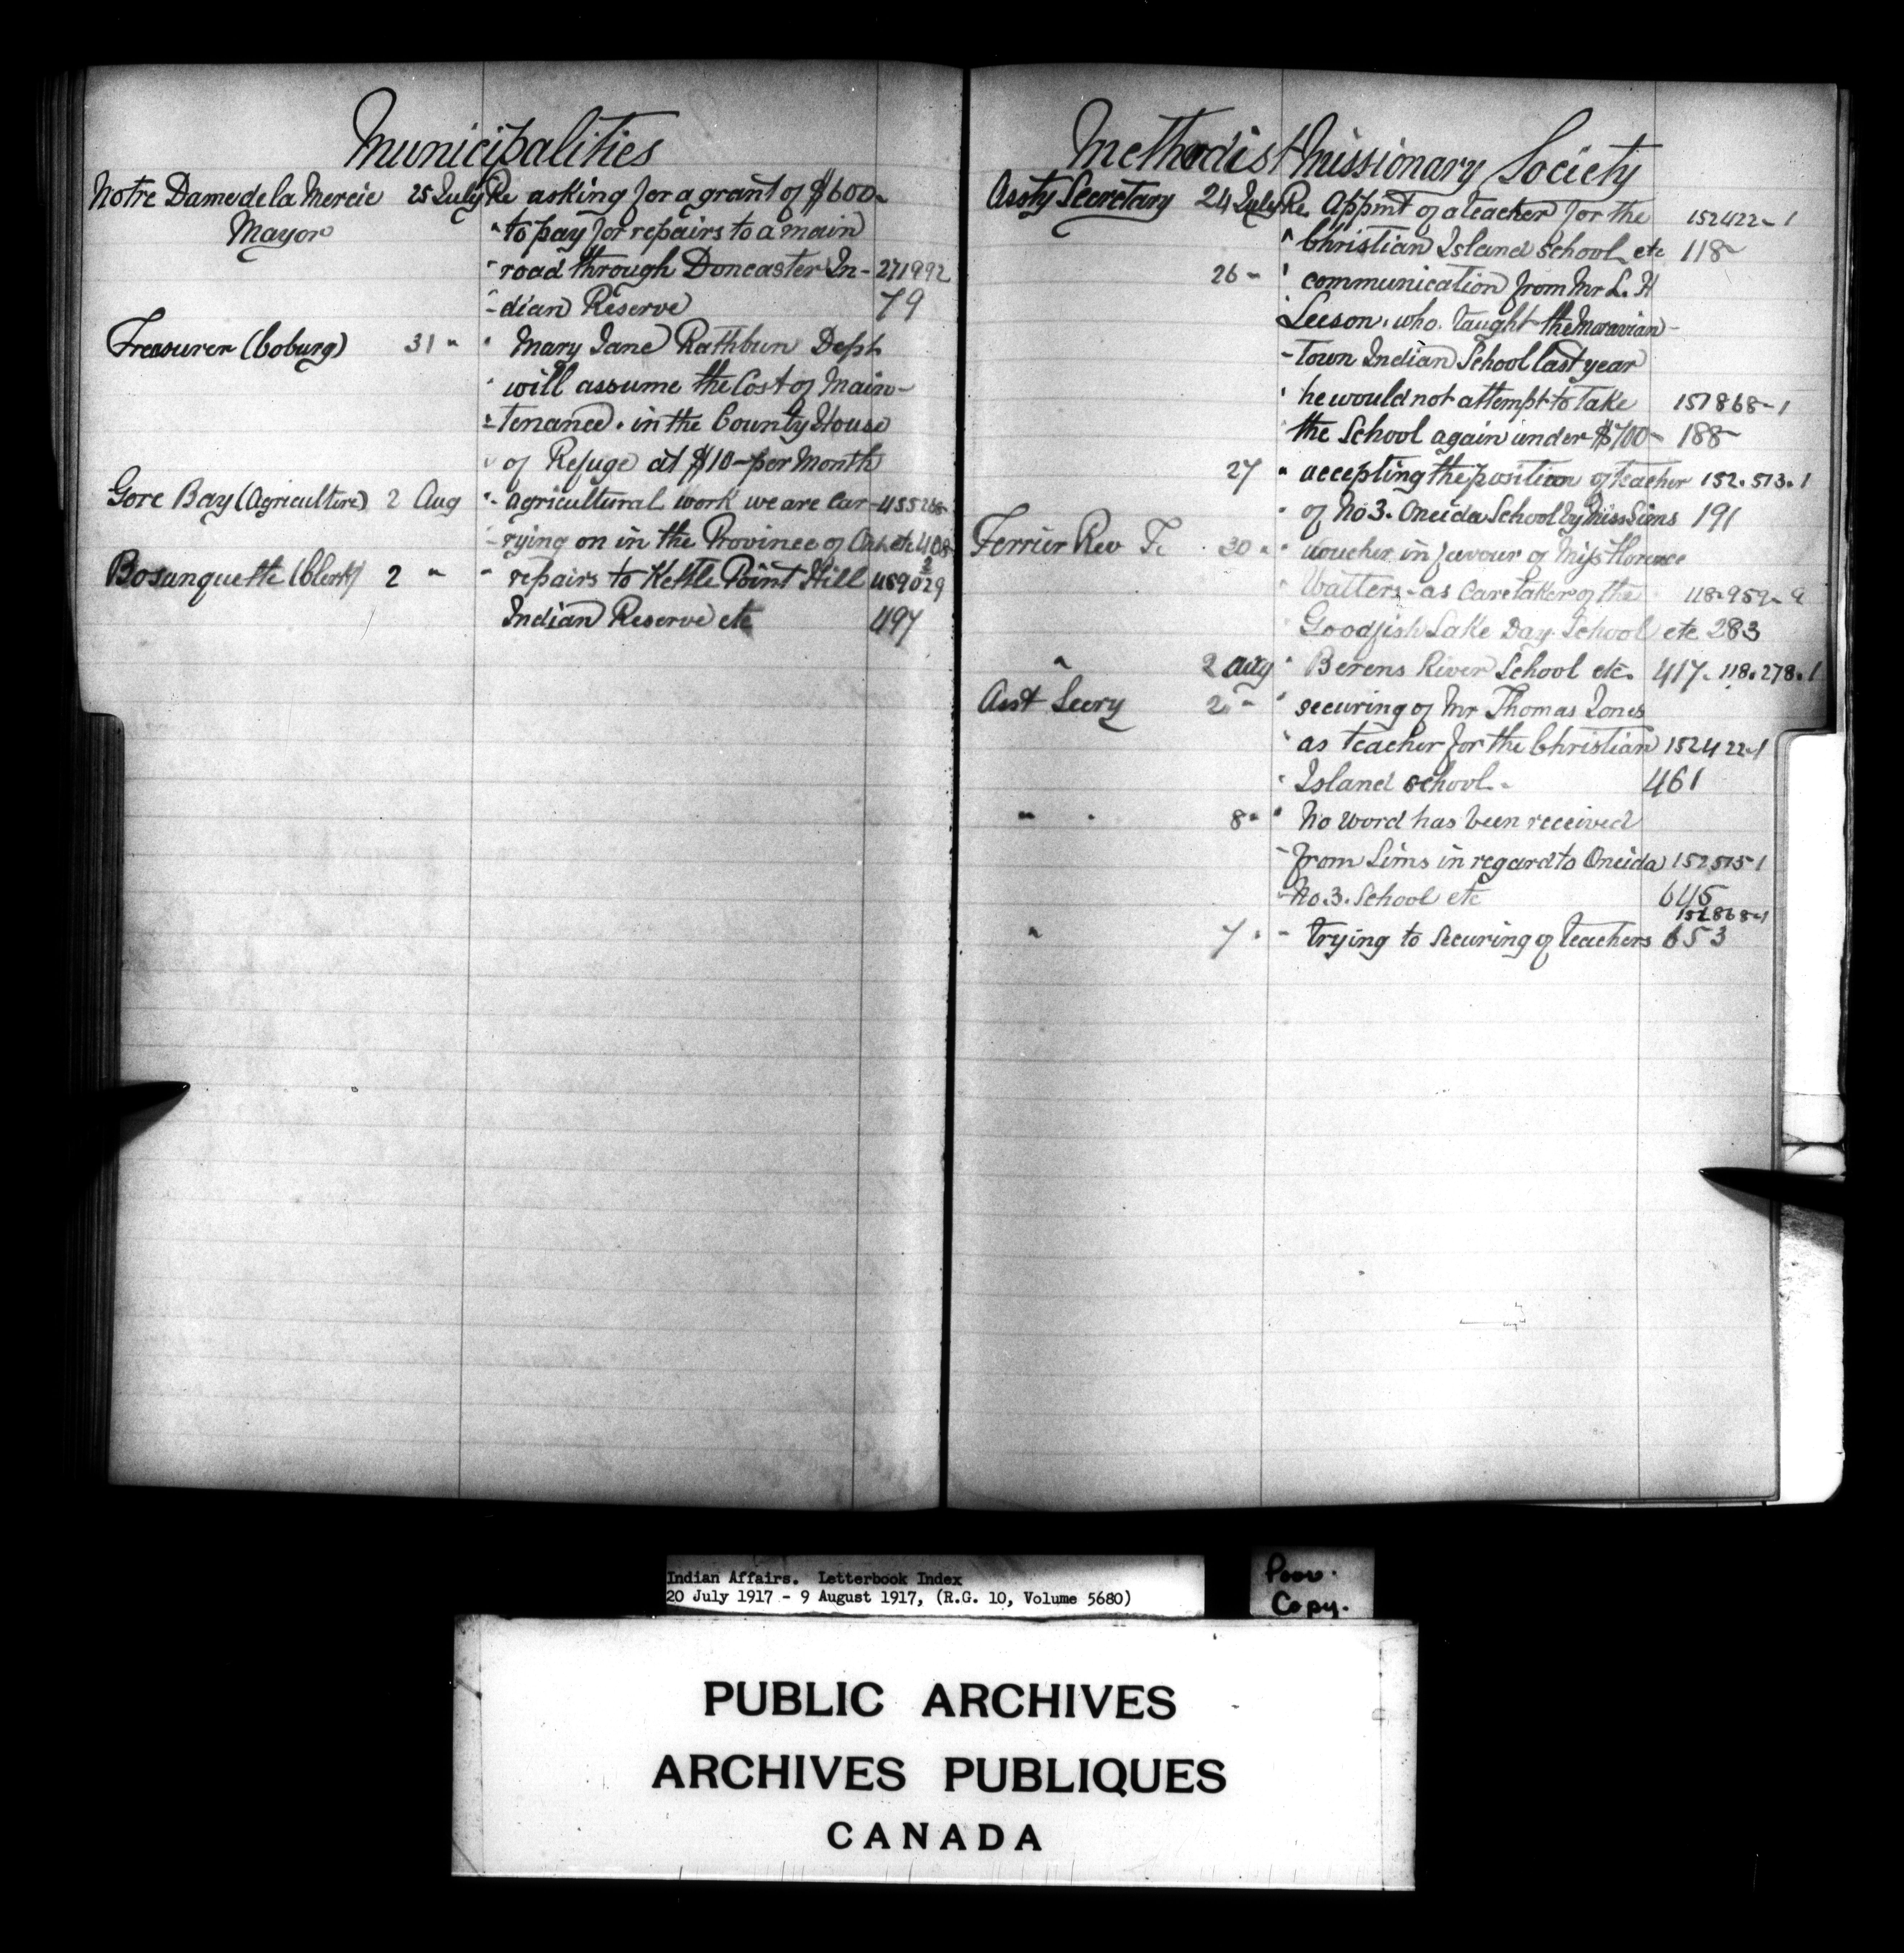 Municipalities
Notre Dame de la Mercie 25 July Re asking for a grant of $600-
Mayor " to pay for repairs to a main
" road through Doncaster In- 271992
- dian Reserve 79
Treasurer (Coburg) 31 " " Mary Jane Rathbun Dept
" will assume the Cost of Main-
- tenance. in the County House
" of Refuge at $10- per Month
Gore Bay (Agriculture) 2 Aug " agricultural work we are car- 455268-
- rying on in the Province of Ont. etc 408
Bosanquette (Clerk) 2 " " repairs to Kettle Point Hill 459029
Indian Reserve etc 497
Methodist Missionary Society
Assty Secretary 24 July Re. Appmt of a teacher for the 152422-1
" Christian Island School etc 118-
26 - " communication from Mr L. H
Leeson. who. taught the Moravian-
- Town Indian School last year
" he would not attempt to take 151868-1
" the School again under $700- 188-
27 " accepting the position of teacher 152.513.1
" of No 3. Oneida School by Miss Sims 191
Ferrier Rev T. 30 " " voucher in favour of Miss Florence
" Watters- as Caretaker of the 118-959-9
" Goodfish Lake Day School etc 283
" 2 Aug " Berens River School etc. 417. 118.278.1
Asst Secry 2 - " securing of Mr Thomas Jones
" as teacher for the Christian 152422-1
" Island school. - 461
" " 8 " " No word has been received
- from Sims in regard to Oneida 152515-1
- No. 3. School etc 645
151868-1
" 7 " - trying to securing of teachers 653
Indian Affairs. Letterbook Index
20 July 1917 - 9 August 1917, (R.G. 10, Volume 5680)
Poor.
Copy.
PUBLIC ARCHIVES
ARCHIVES PUBLIQUES
CANADA